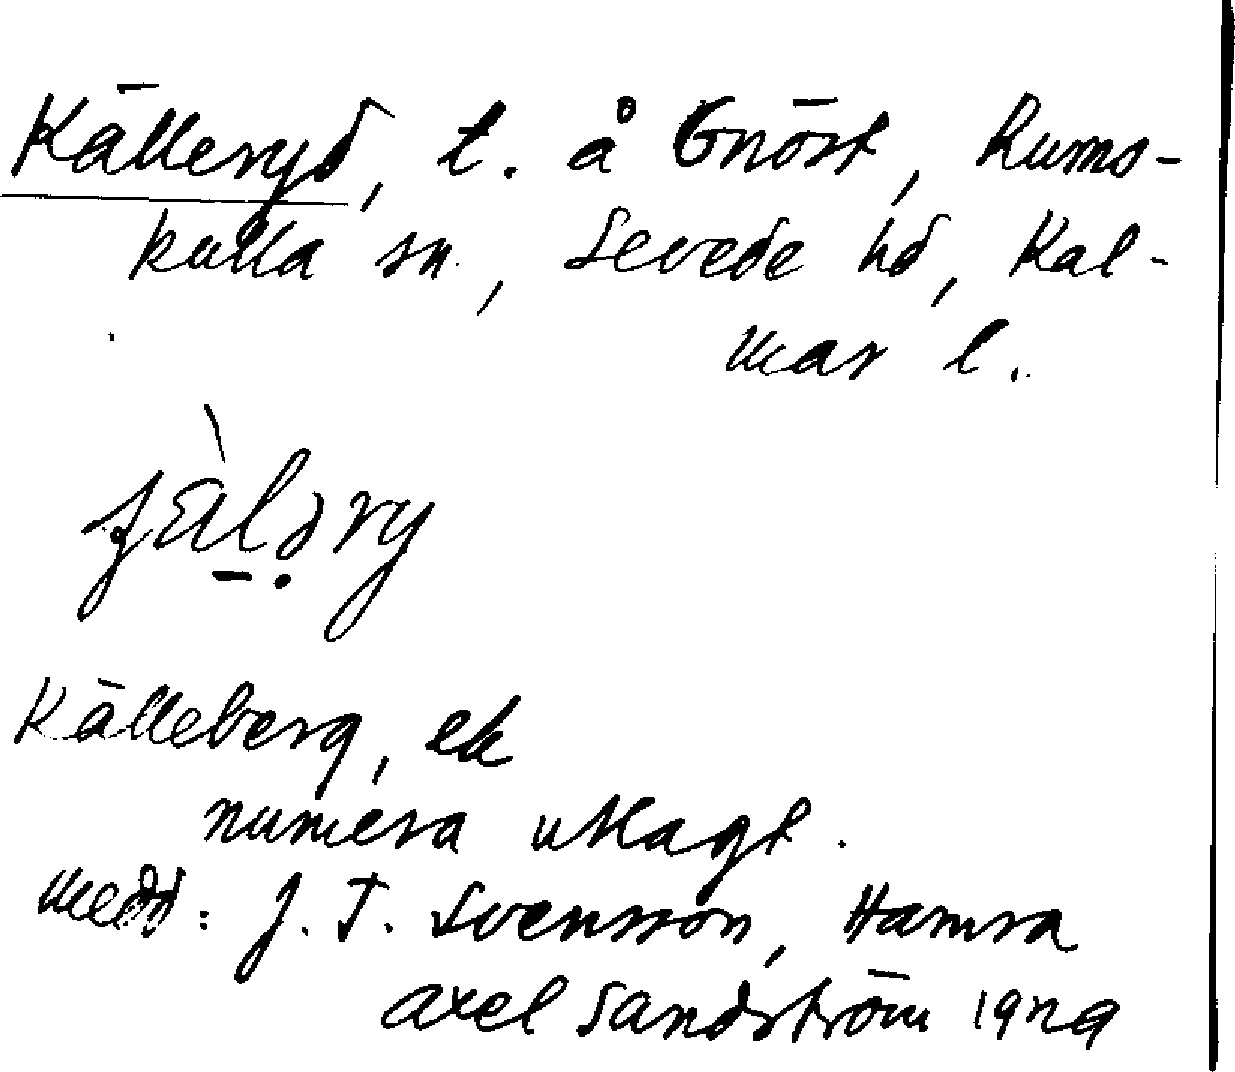 Källeryd, t. å Gnöst, Rums-
kulla sn., Sevede hd, Kal-
mar l.
Källeberg, ek
numera utlagt.
Medd: J. T. Svensson, Hamra
Axel Sandström 1929